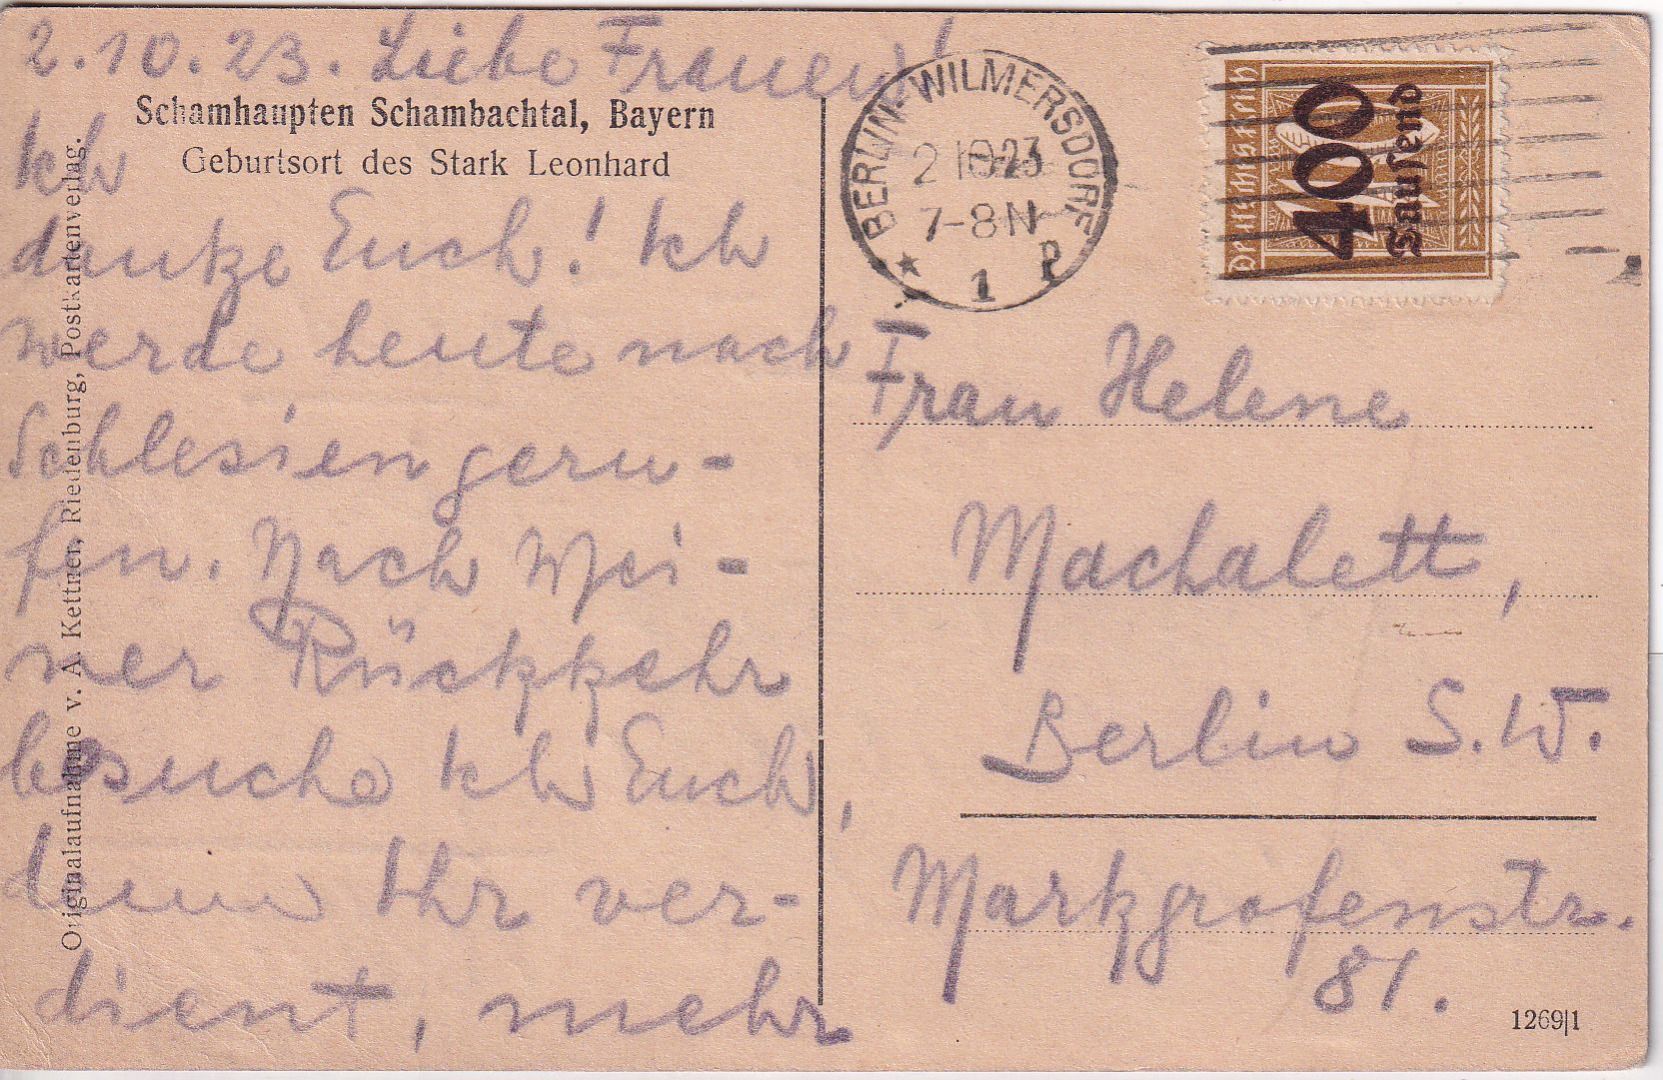 2.10.23. Liebe Frauen!
Schamhaupten Schambachtal, Bayern
Geburtsort des Stark Leonhard
Ich
danke Euch! Ich
werde heute nach
Schlesien geru-
fen. Nach Mei-
ner Rückkehr
besuche ich Euch,
denn Ihr ver-
dient, mehr
Originalaufnahme v. A. Kettner, Riedenburg, Postkartenverlag.
BERLIN-WILMERSDORF
2 10 23
7-8 N
* 1 P
Deutsches Reich
400
Tausend
Frau Helene
Machalett,
Berlin S.W.
Markgrafenstr.
81.
1269|1